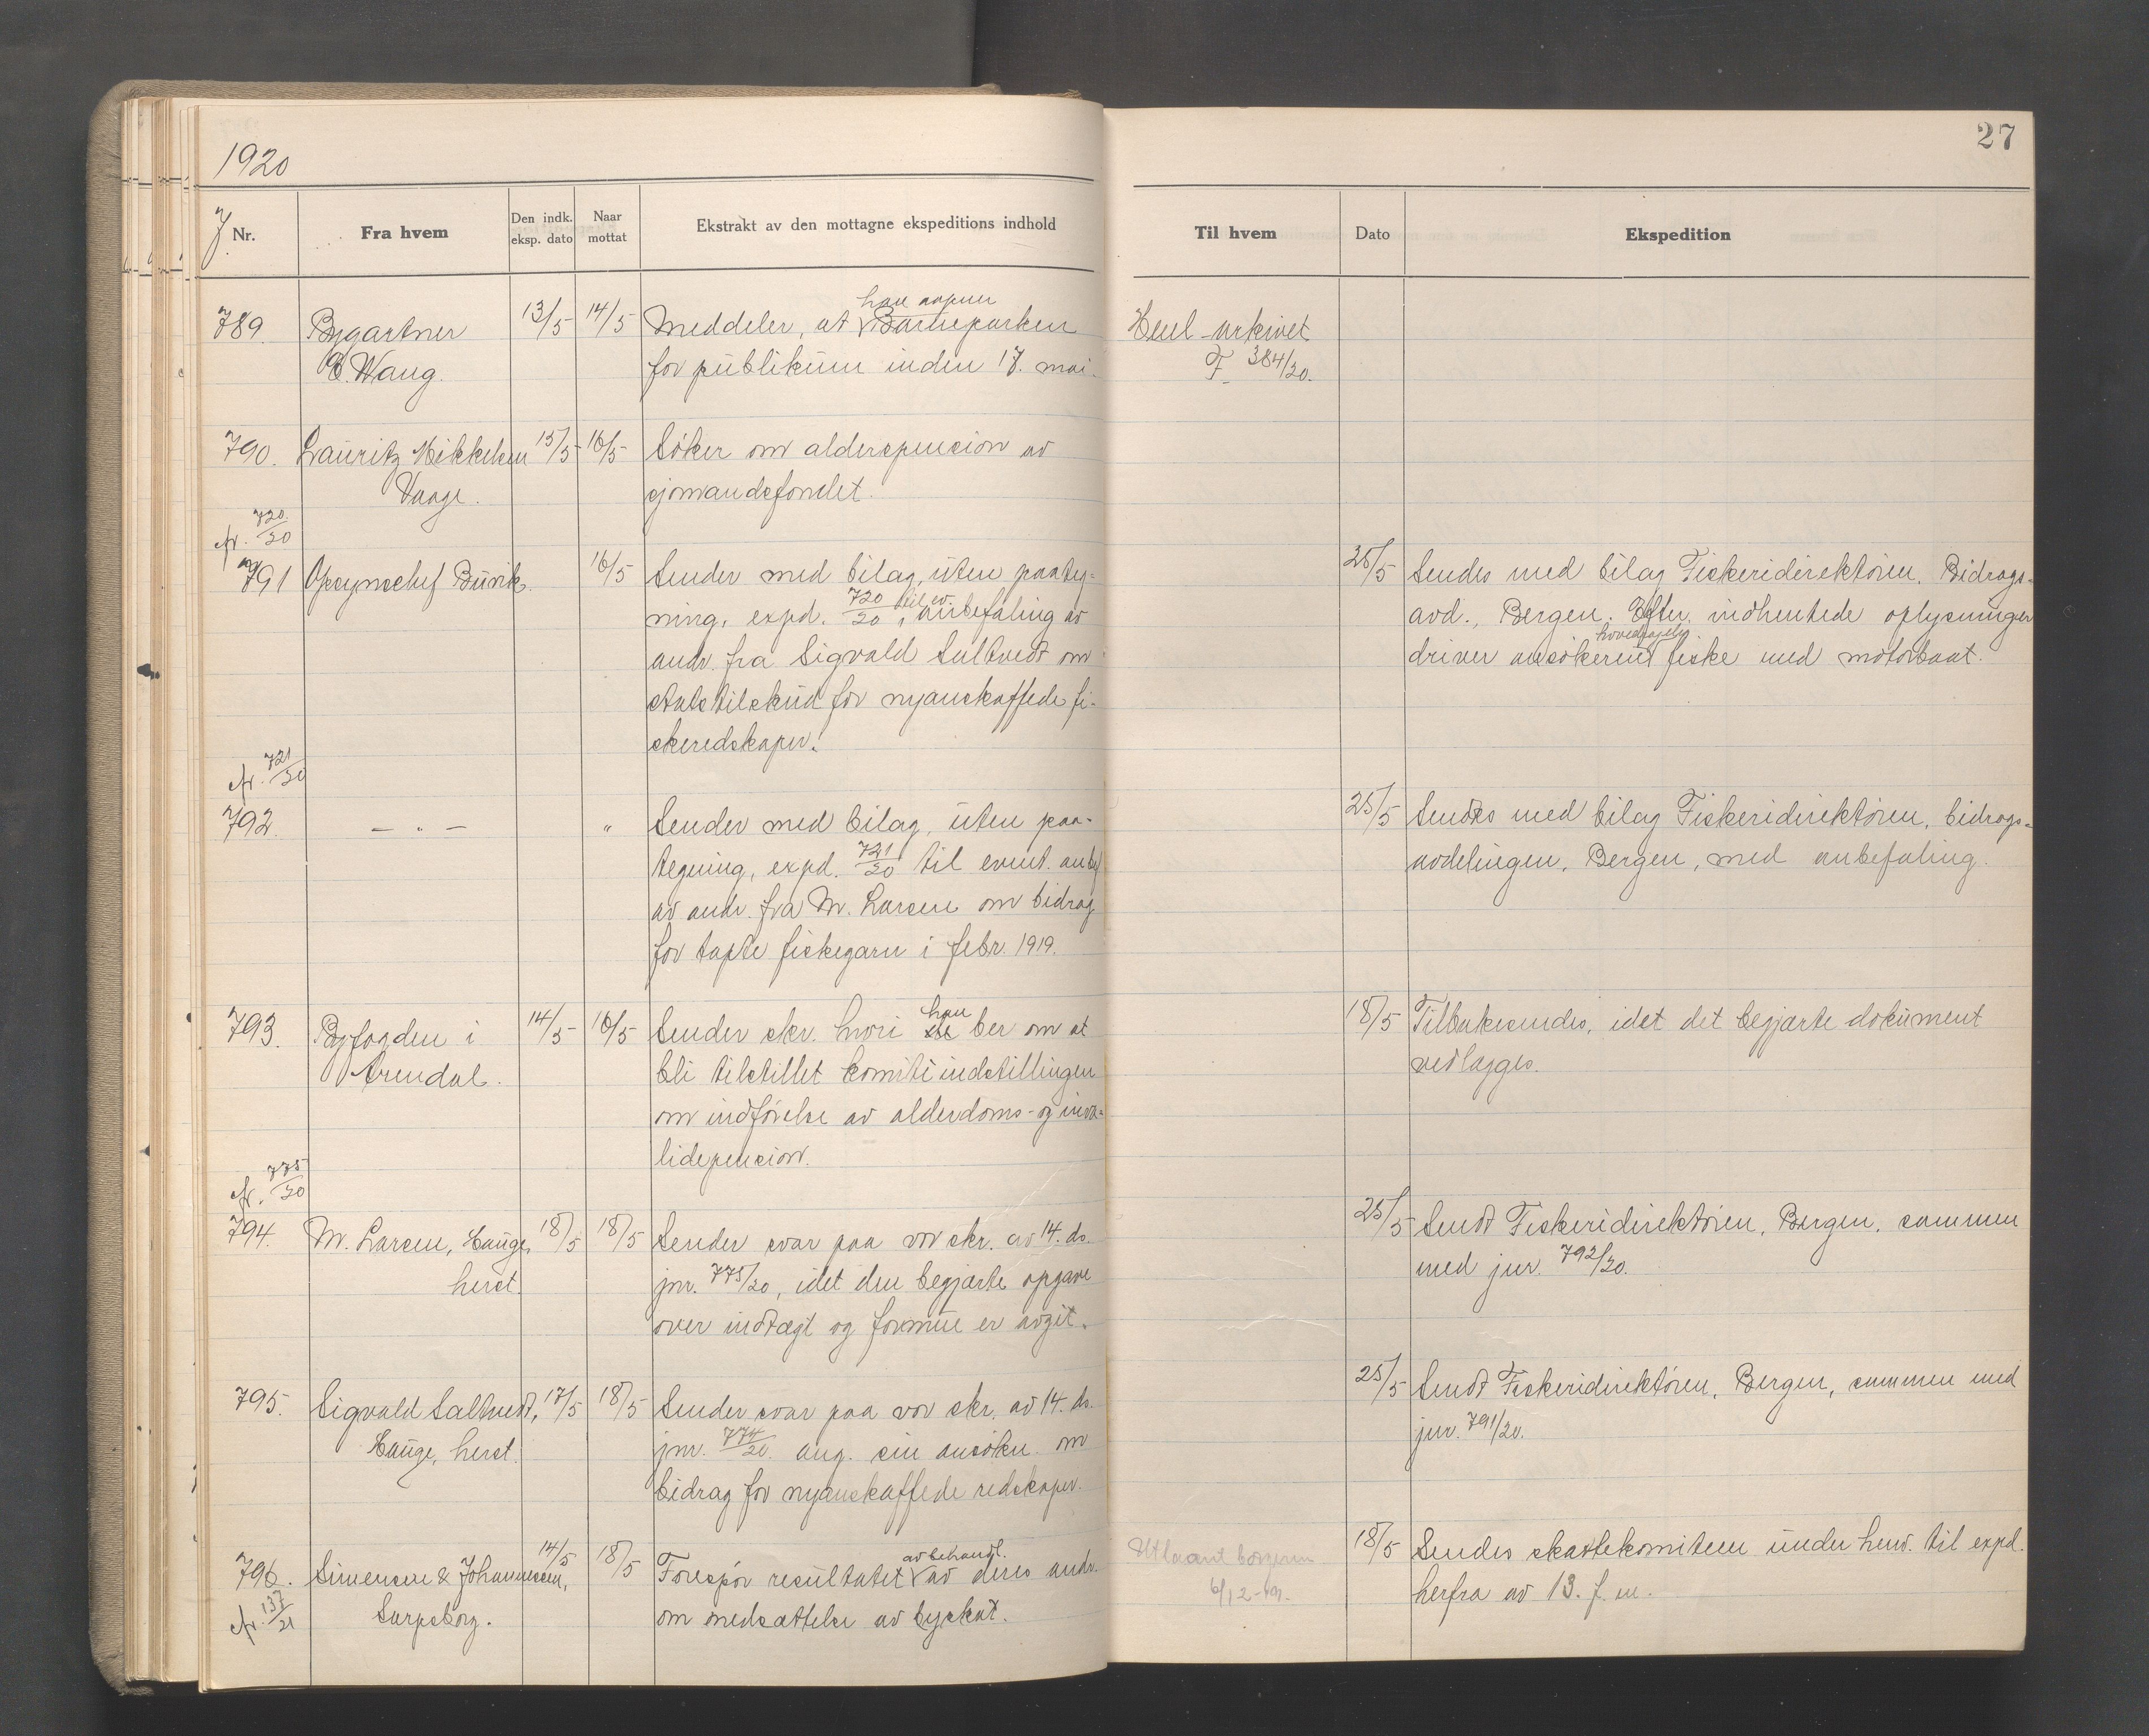 1920
27
J. Nr.
Fra hvem
Den indk. eksp. dato
Naar mottat
Ekstrakt av den mottagne ekspeditions indhold
Til hvem
Dato
Ekspedition
789. Bygartner 13/5 14/5 Meddeler, at han aapner Barneparken
E. Wang. for publikum inden 17. mai.
Henl. arkivet
F 384/20.
790. Lauritz Mikkelsen 15/5 16/5 Söker om alderspension av
Vaage. sjömandsfondet.
cfr. 720/20
791 Opsynschef Buvik. 16/5 Sender med bilag, uten paateg-
ning, expd. 720/20 til ev. anbefaling av
andr. fra Sigvald Saltvedt om
statstilskud for nyanskaffede fi-
skeredskaper.
25/5 Sendes med bilag Fiskeridirektören, Bidrags-
avd., Bergen. Efter indhentede oplysninger
driver ansökeren hovedsagelig fiske med motorbaat.
cfr. 721/20
792. — " — " Sender med bilag, uten paa-
tegning, expd. 721/20 til event. anbef.
av andr. fra M. Larsen om bidrag
for tapte fiskegarn i febr. 1919.
25/5 Sendes med bilag Fiskeridirektören, bidrags-
avdelingen, Bergen, med anbefaling.
793. Byfogden i 14/5 16/5 Sender skr. hvori han ber om at
Arendal. bli tilstillet komitéindstillingen
om indförelse av alderdoms- og inva-
lidepension.
18/5 Tilbakesendes, idet det begjærte dokument
vedlægges.
cfr. 775/20
794 M. Larsen, Hauge, 18/5 18/5 Sender svar paa vor skr. av 14. ds.
herst. jnr. 775/20, idet den begjærte opgave
over indtægt og formue er avgit.
25/5 Sendt Fiskeridirektören, Bergen, sammen
med jnr. 792/20.
795. Sigvald Saltvedt, 17/5 18/5 Sender svar paa vor skr. av 14. ds.
Hauge, herst. jnr. 774/20. ang. sin ansökn. om
bidrag for nyanskaffede redskaper.
25/5 Sendt Fiskeridirektören, Bergen, sammen med
jnr. 791/20.
796. Simensen & Johannessen, 14/5 18/5 Forespör resultatet av behandl. av deres andr.
cfr. 137/21 Sarpsborg. om nedsættelse av byskat.
Utlaant
6/12-
18/5 Sendes skattekomiteen under henv. til expd.
herfra av 13. f. m.